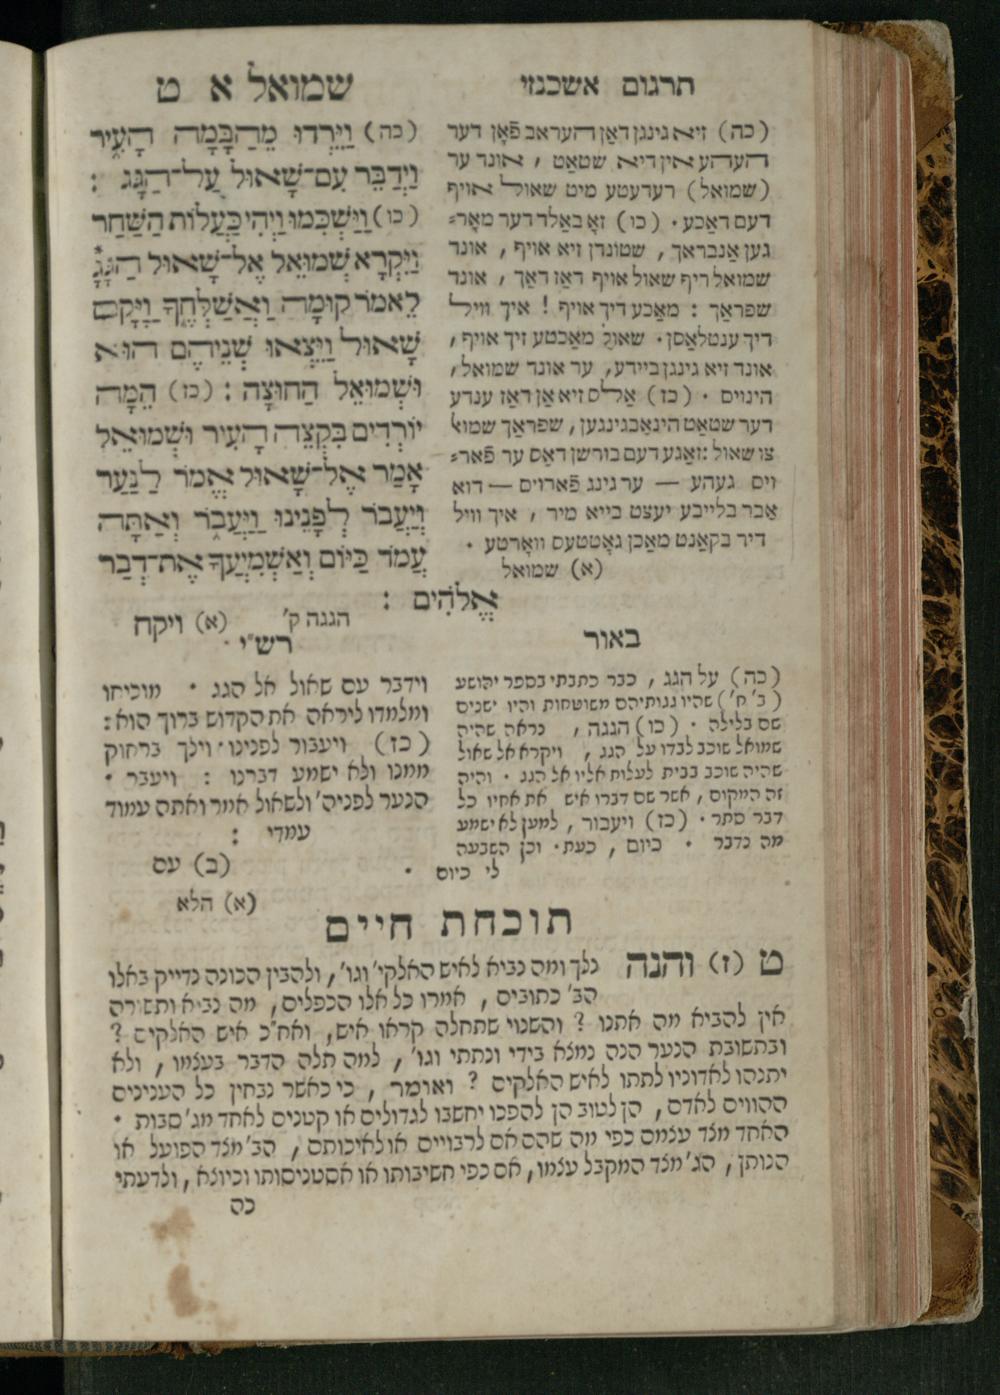 תרגום אשכנזי
שמואל א ט
(כה) זיא גינגן דאַן העראב פֿאָן דער
העהע אין דיא שטאַט , אונד ער
(שמואל) רעדעטע מיט שאול אויף
דעם דאַכע . (כו) זאָ באַלד דער מאָר=
גען אַנבראַך , שטונדן זיא אויף , אונד
שמואל ריף שאול אויף דאז דאַך , אונד
שפראַך : מאַכע דיך אויף ! איך וויל
דיך ענטלאַסן . שאול מאַכטע זיך אויף ,
אונד זיא גינגן ביידע, ער אונד שמואל,
הינוים . (כז) אַלס זיא אַן דאז ענדע
דער שטאַט הינאַבגינגען, שפראַך שמוא'
צו שאול : זאַגע דעם בורשן דאס ער פֿאר=
וים געהע — ער גינג פֿארוים — דוא
אַבר בלייבע יעצט בייא מיר , איך וויל
דיר בקאַנט מאַכן גאָטטעס וואָרטע .
(א) שמואל
(כה) וַיֵּרְדוּ מֵהַבָּמָה הָעִיר
וַיְדַבֵּר עִם־שָׁאוּל עַל־הַגָּג :
(כו) וַיַּשְׁכִּמוּ וַיְהִי כַּעֲלוֹת הַשַּׁחַר
וַיִּקְרָא שְׁמוּאֵל אֶל־שָׁאוּל הַגָּגָ
לֵאמֹר קוּמָה וַאֲשַׁלְּחֶךָּ וַיָּקָם
שָׁאוּל וַיֵּצְאוּ שְׁנֵיהֶם הוּא
וּשְׁמוּאֵל הַחוּצָה : (כז) הֵמָּה
יוֹרְדִים בִּקְצֵה הָעִיר וּשְׁמוּאֵל
אָמַר אֶל־שָׁאוּל אֱמֹר לַנַּעַר
וְיַעֲבֹר לְפָנֵינוּ וַיַּעֲבֹר וְאַתָּה
עֲמֹד כַּיּוֹם וְאַשְׁמִיעֲךָ אֶת־דְּבַר
אֱלֹהִים :
הגגה ק' (א) ויקח
באור
(כה) על הגג , כבר כתבתי בספר יהושע
(ב' ח') שהיו גגותיהם משוטחות והיו ישנים
שם בלילה . (כו) הגגה , נראה שהיה
שמואל שוכב לבדו על הגג , ויקרא אל שאול
שהיה שוכב בבית לעלות אליו אל הגג . והיה
זה המקום , אשר שם דברו איש את אחיו כל
דבר סתר . (כז) ויעבור , למען לא ישמע
מה נדבר . כיום , כעת . וכן השבעה
לי כיום .
רש"י
וידבר עם שאול אל הגג . מוכיחו
ומלמדו ליראה את הקדוש ברוך הוא :
(כז) ויעבור לפנינו . וילך ברחוק
ממנו ולא ישמע דברנו : ויעבר .
הנער לפניה' ולשאול אמר ואתה עמוד
עמדי :
(ב) עם
(א) הלא
תוכחת חיים
ט (ז) והנה נלך ומה נביא לאיש האלקי' וגו' , ולהבין הכונה נדייק באלו
הב' כתובים , אמרו כל אלו הכפלים, מה נביא ותשורה
אין להביא מה אתנו ? והשנוי שתחלה קראו איש, ואח"כ איש האלקים ?
ובתשובת הנער הנה נמצא בידי ונתתי וגו' , למה תלה הדבר בעצמו , ולא
יתנהו לאדוניו לתתו לאיש האלקים ? ואומר , כי כאשר נבחין כל הענינים
ההווים לאדם, הן לטוב הן להפכו יחשבו לגדולים או קטנים לאחד מג' סבות .
האחד מצד עצמם כפי מה שהם אם לרבויים או לאיכותם , הב' מצד הפועל או
הנותן, הג' מצד המקבל עצמו, אם כפי חשיבותו או אסטניסותו וכיוצא , ולדעתי
כה